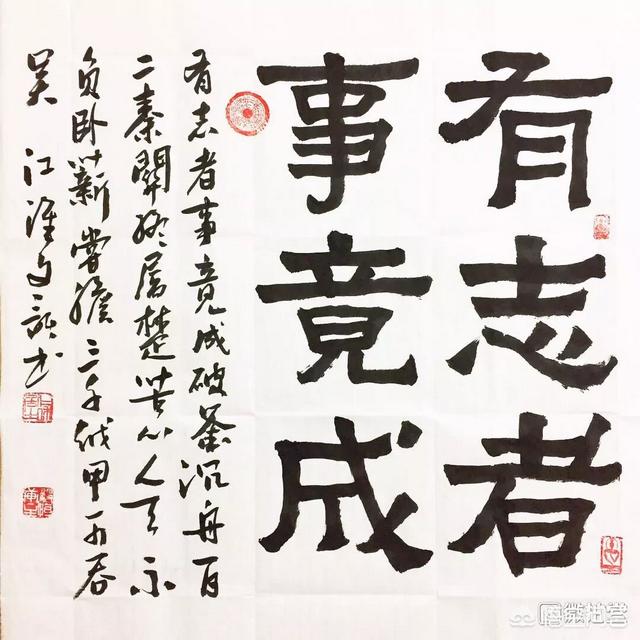 有志者
事竟成
有志者事竟成破釜沉舟百
二秦關終屬楚苦心人天不
负卧薪嘗膽三千越甲可吞
吴 江淮 书
微拍堂